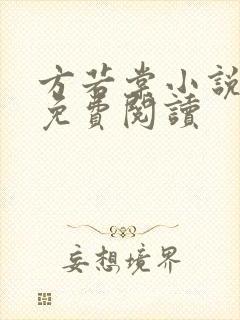 方若棠小說
免費閱讀
妄想境界